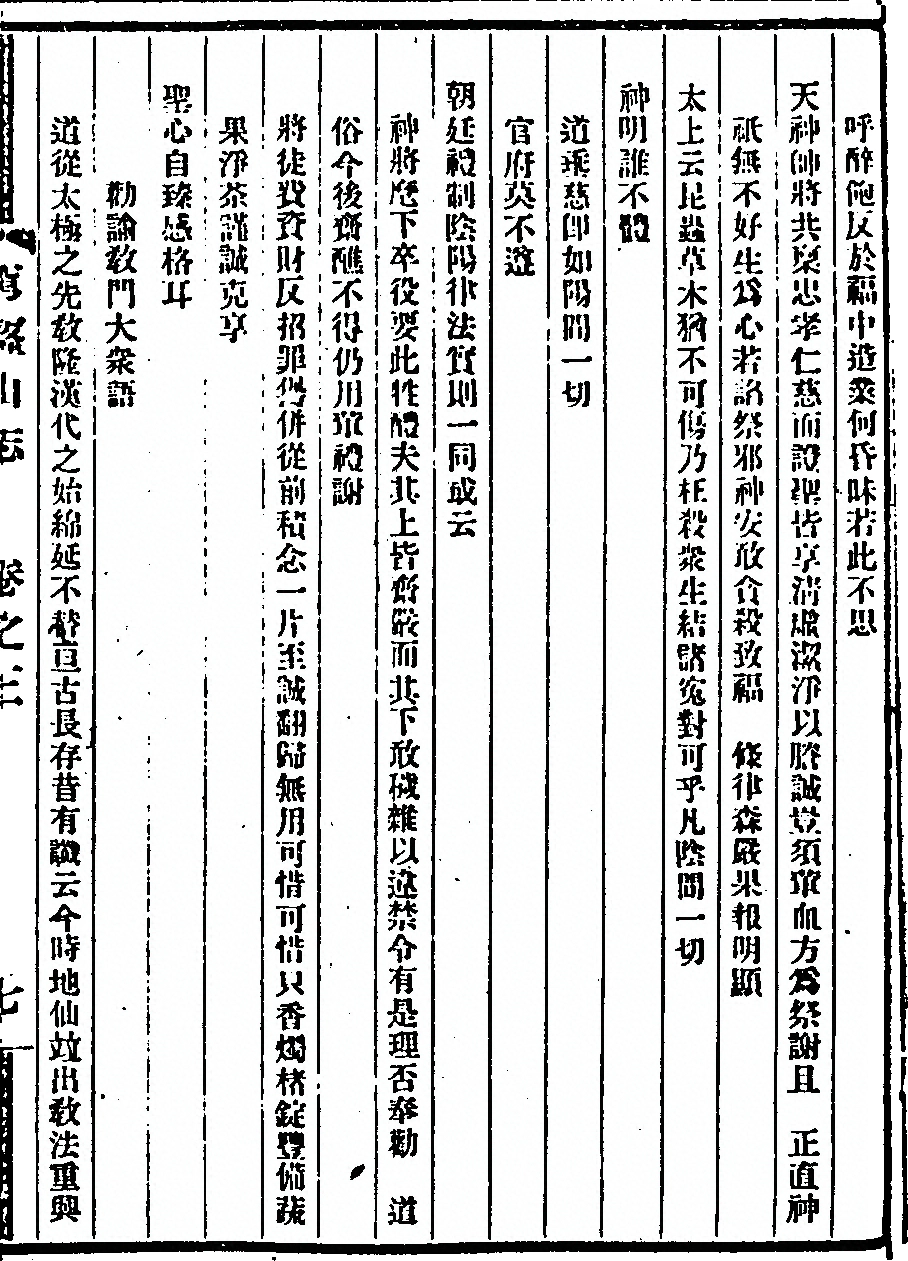 呼醉飽反於福中造業何昏昧若此不思
天神帥將共稟忠孝仁慈而證聖皆享清虛潔淨以膺誠豈須葷血方為祭謝且　正直神
祇無不好生為心若諂祭邪神安敢食殺致福　條律森嚴果報明顯
太上云昆蟲草木猶不可傷乃枉殺衆生結諸寃對可乎凡陰間一切
神明誰不體
道乘慈即如陽間一切
官府莫不遵
朝廷禮制陰陽律法實則一同或云
神將麾下卒役要此牲醴夫其上皆齋嚴而其下敢穢雜以違禁令有是理否奉勸　道
俗今後齋醮不得仍用葷禮謝
將徒費資財反招罪愆併從前積念一片至誠翻歸無用可惜可惜只香燭楮錠豐備蔬
果淨茶謹誠克享
聖心自臻感格耳
勸諭敎門大衆語
道從太極之先敎隆漢代之始綿延不替亘古長存昔有讖云今時地仙竝出敎法重興
山志　卷之三　七